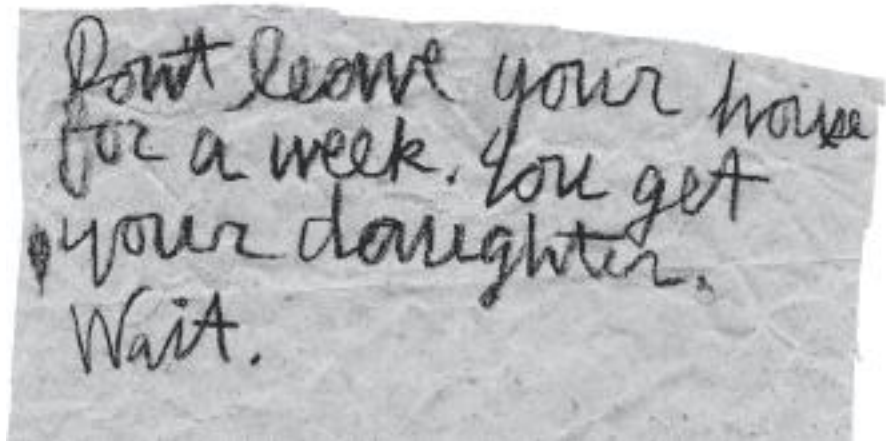 Don't leave your house
for a week. You get
your daughter.
Wait.